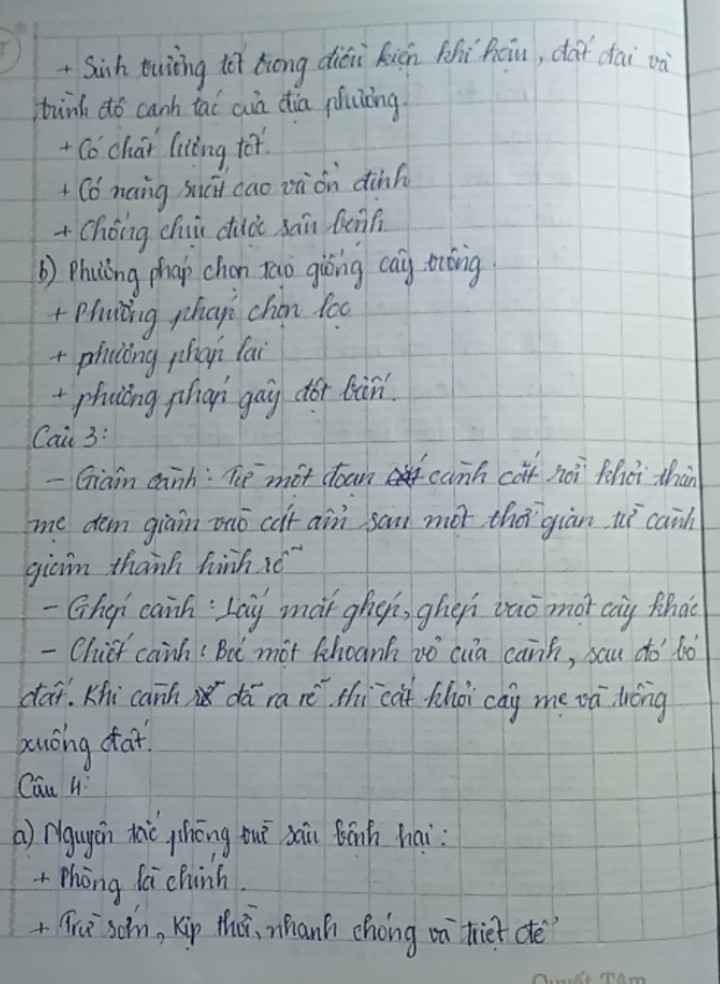 + Sinh trưởng tốt trong điều kiện khí hậu, đất đai và
trình độ canh tác của địa phương.
+ Có chất lượng tốt.
+ Có năng suất cao và ổn định
+ Chống chịu được sâu bệnh
b) Phương pháp chọn tạo giống cây trồng.
+ Phương pháp chọn lọc
+ phương pháp lai
+ phương pháp gây đột biến.
Câu 3:
- Giâm cành: Từ một đoạn cành cắt rời khỏi thân
mẹ đem giâm vào cát ẩm sau một thời gian từ cành
giâm thành hình rễ
- Ghép cành: Lấy mắt ghép, ghép vào một cây khác
- Chiết cành: Bóc một khoanh vỏ của cành, sau đó bó
đất. Khi cành đã ra rễ thì cắt khỏi cây mẹ và trồng
xuống đất.
Câu 4:
a) Nguyên tắc phòng trừ sâu bệnh hại:
+ Phòng là chính.
+ Trừ sớm, kịp thời, nhanh chóng và triệt để
Quyết Tâm